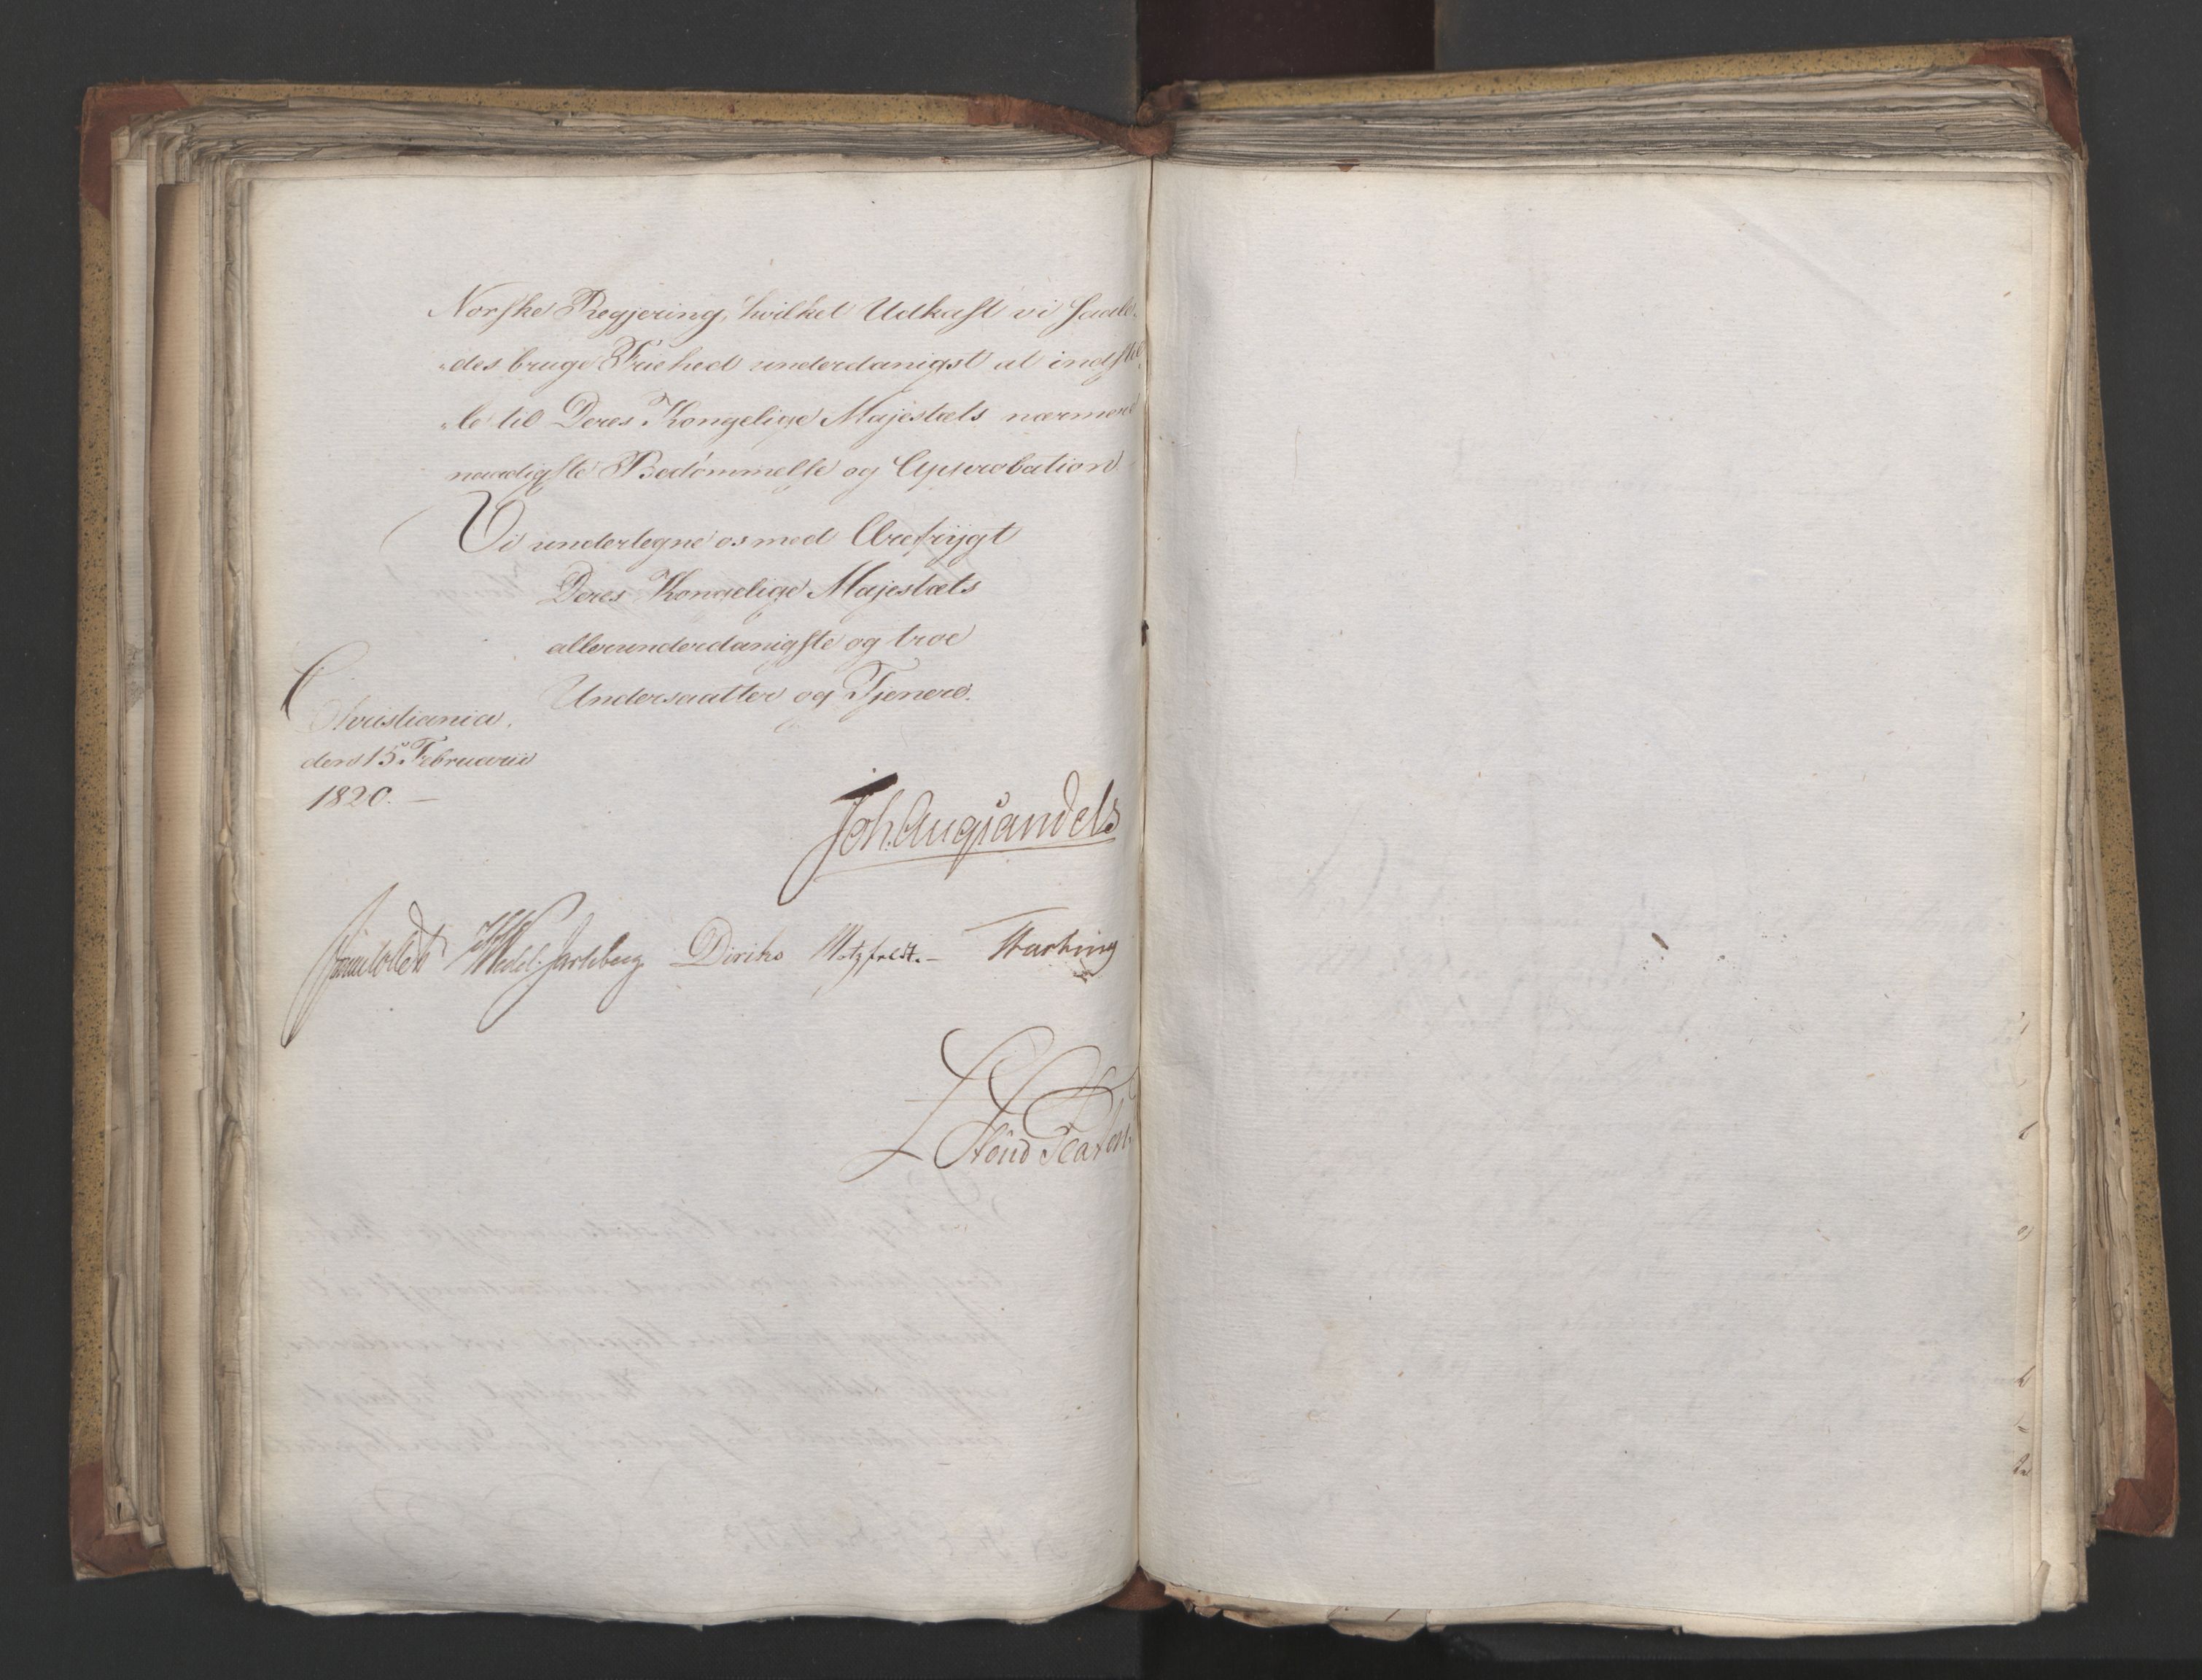 Norske Regjering, hvilket Udkast vi saale-
-des bruge Friehed underdanigst at indstil-
-le til Deres Kongelige Majestæts nærmere
naadigste Bedømmelse og Approbation.
Vi undertegne os med Ærefrygt
Deres Kongelige Majestæts
allerunderdanigste og troe
Undersaatter og Tjenere.
Christiania,
den 15 Februarii
1820. —
Joh. Aug. Sandels
Sommerfeldt Wedel Jarlsberg Diriks Motzfeldt. – Fasting